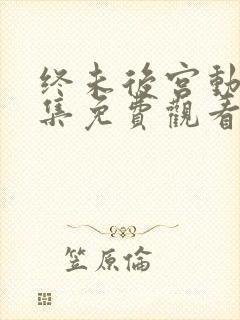 终末後宮動
集免費觀看
笠原倫